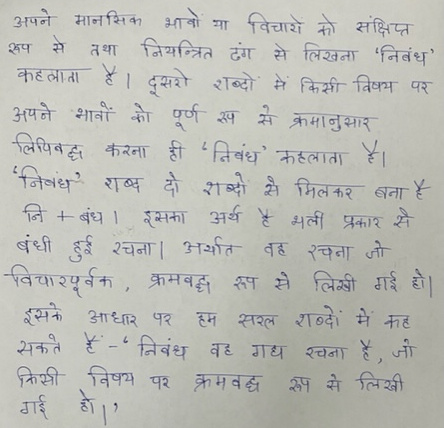 अपने मानसिक भावों या विचारों को संक्षिप्त
रूप से तथा नियन्त्रित ढंग से लिखना 'निबंध'
कहलाता है। दूसरो शब्दों में किसी विषय पर
अपने भावों को पूर्ण रूप से क्रमानुसार
लिपिबद्ध करना ही 'निबंध' कहलाता है।
'निबंध' शब्द दो शब्दों से मिलकर बना है
नि + बंध। इसका अर्थ है भली प्रकार से
बंधी हुई रचना। अर्थात वह रचना जो
विचारपूर्वक, क्रमबद्ध रूप से लिखी गई हो।
इसके आधार पर हम सरल शब्दों में कह
सकते हैं -' निबंध वह गद्य रचना है, जो
किसी विषय पर क्रमबद्ध रूप से लिखी
गई हो।'